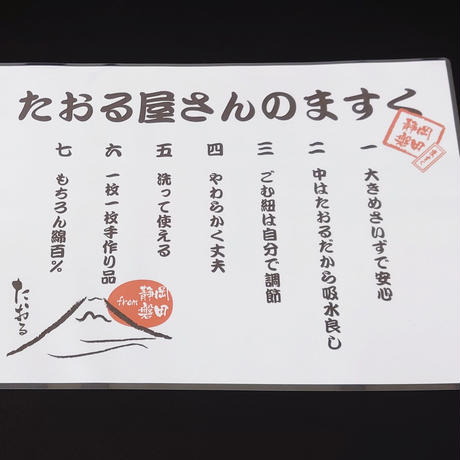 たおる屋さんのますく
一 大きめさいずで安心
二 中はたおるだから吸水良し
三 ごむ紐は自分で調節
四 やわらかく丈夫
五 洗って使える
六 一枚一枚手作り品
七 もちろん綿百%
静岡
磐田
from
静岡
磐田
たおる